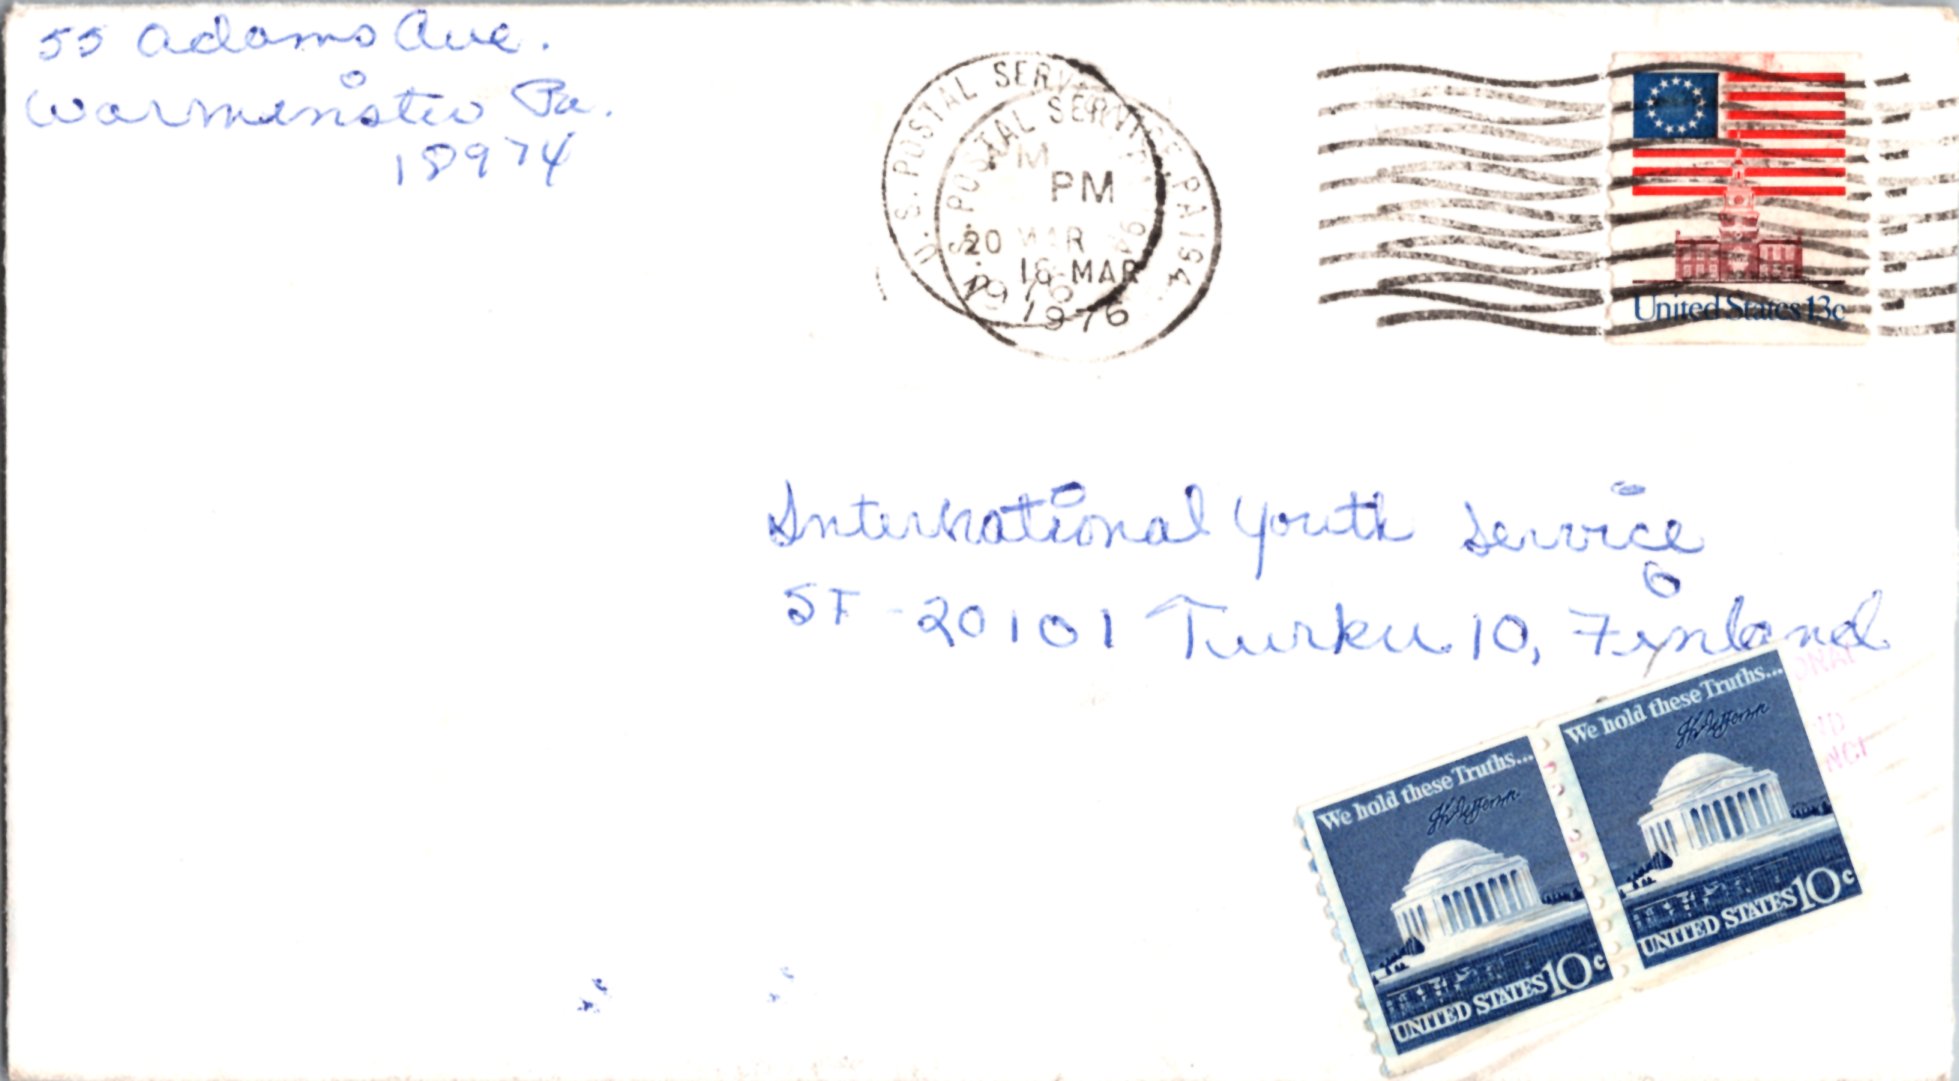 55 Adams Ave.
Warminster Pa.
18974
U.S. POSTAL SERVICE, PA 194
PM
20 MAR
1976
U.S. POSTAL SERVICE, PA 194
PM
16 MAR
1976
United States 13c
International Youth Service
SF-20101 Turku 10, Finland
We hold these Truths...
Th Jefferson
UNITED STATES 10c
We hold these Truths...
Th Jefferson
UNITED STATES 10c